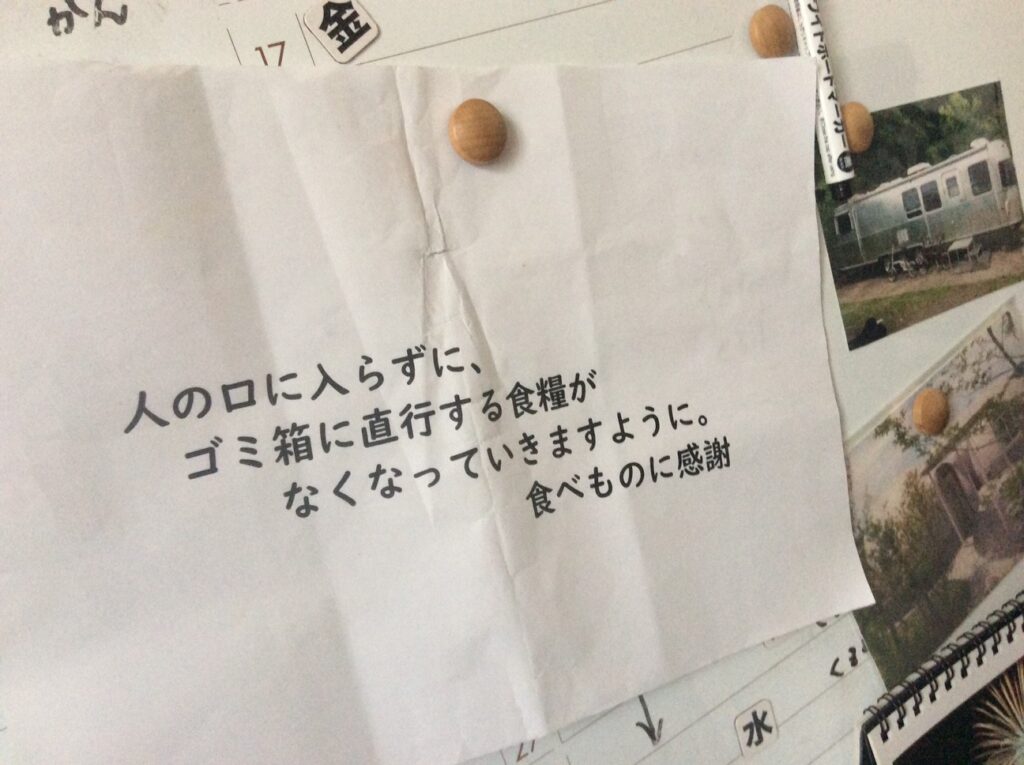 かん
17 金
人の口に入らずに、
ゴミ箱に直行する食糧が
なくなっていきますように。
食べものに感謝
水